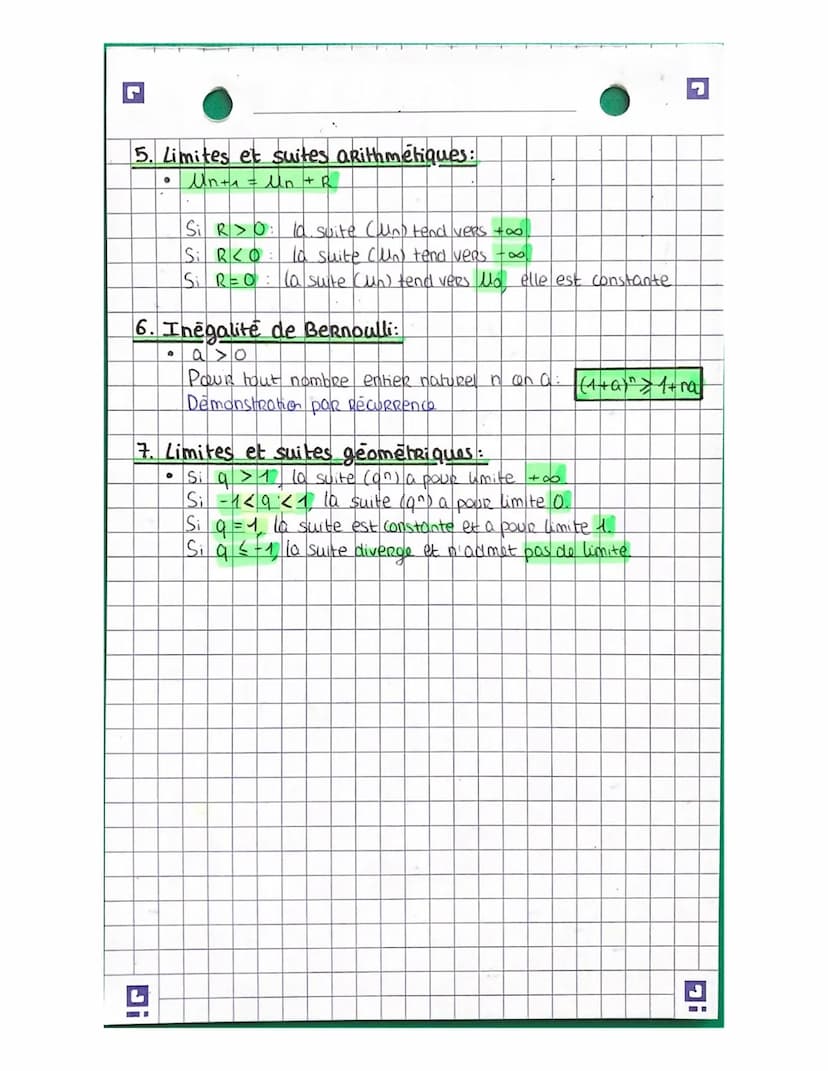 5. Limites et suites arithmétiques:
• Un+1 = Un + R
Si R > 0 : la suite (Un) tend vers +∞
Si R < 0 : la suite (Un) tend vers -∞
Si R = 0 : la suite (Un) tend vers U0, elle est constante
6. Inégalité de Bernoulli:
• a > 0
Pour tout nombre entier naturel n on a : (1+a)ⁿ ≥ 1+na
Démonstration par récurrence
7. Limites et suites géométriques:
• Si q > 1, la suite (qⁿ) a pour limite +∞
Si -1 < q < 1, la suite (qⁿ) a pour limite 0.
Si q = 1, la suite est constante et a pour limite 1.
Si q ≤ -1, la suite diverge et n'admet pas de limite